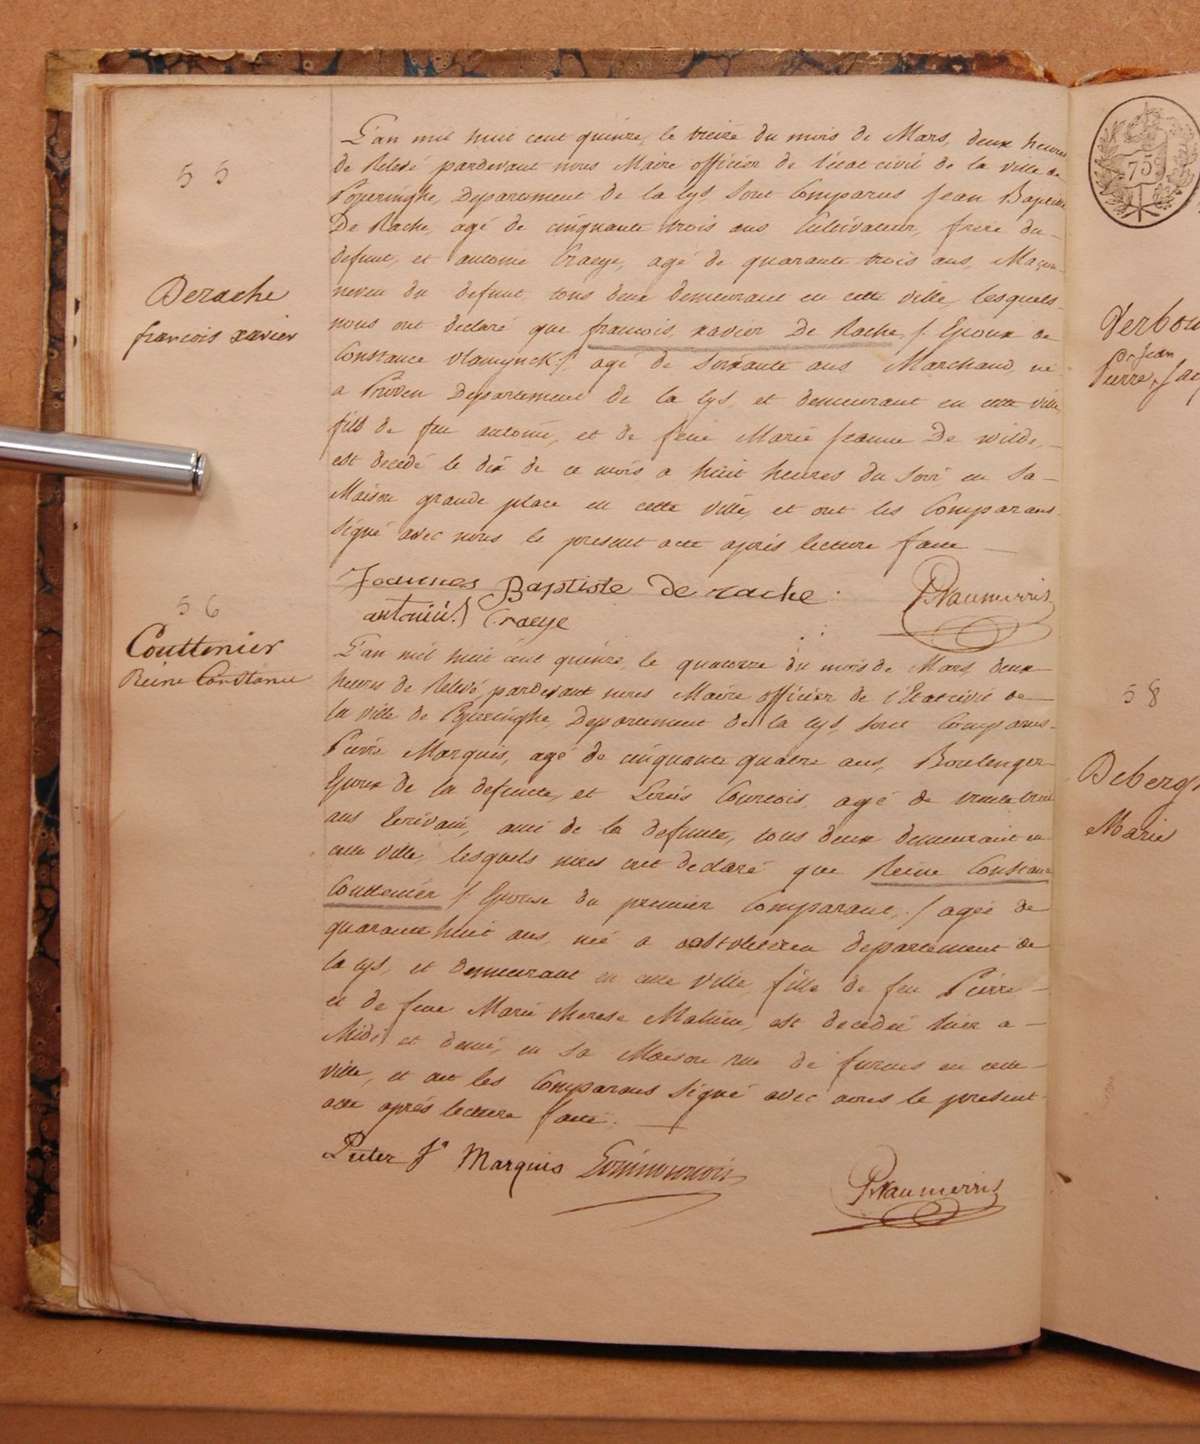 55
Derache
françois xavier
L'an mil huit cent quinze, le treize du mois de Mars, deux heures
de Relevé pardevant nous Maire officier de l'état civil de la ville de
Poperinghe, Departement de la Lys, sont Comparus Jean Baptiste
De Rache, agé de cinquante trois ans Cultivateur, frere du
defunt, et antoine Craeye, agé de quarante trois ans, Maçon
neveu du defunt, tous deux demeurant en cette ville, lesquels
nous ont declaré que francois xavier De Rache, / Epoux de
Constance vlamynck /, agé de Soixante ans Marchand, né
a Proven Departement de la Lys, et demeurant en cette ville,
fils de feu antoine, et de feue Marie Jeanne De wilde,
est decedé le dix de ce mois a huit heures du Soir en Sa
Maison grande place en cette ville, et ont les Comparans
signé avec nous le present acte après lecture faite
Joannes Baptiste De rache.
antonius Craeye
56
Couttenier
Reine Constance
L'an mil huit cent quinze, le quatorze du mois de Mars, deux
heures de Relevé, pardevant nous Maire officier de l'Etat civil de
la ville de Poperinghe, Departement de la Lys, sont Comparus
Pierre Marquis, agé de cinquante quatre ans, Boulenger
Epoux de la defunte, et Louis Courtois agé de trente trois
ans Ecrivain, ami de la defunte, tous deux demeurant en
cette ville, lesquels nous ont declaré que Reine Constance
Couttenier / Epouse du premier Comparant, / agée de
quarante huit ans, née a departement de
la Lys, et demeurant en cette ville, fille de feu Pierre
et de feue Marie therese Mahieu, est decedée hier a
Midi et demi, en sa Maison rue de furnes en cette
ville, et ont les Comparans signé avec nous le present
acte après lecture faite.
Pieter Marquis
75
Pierre
58
Marie